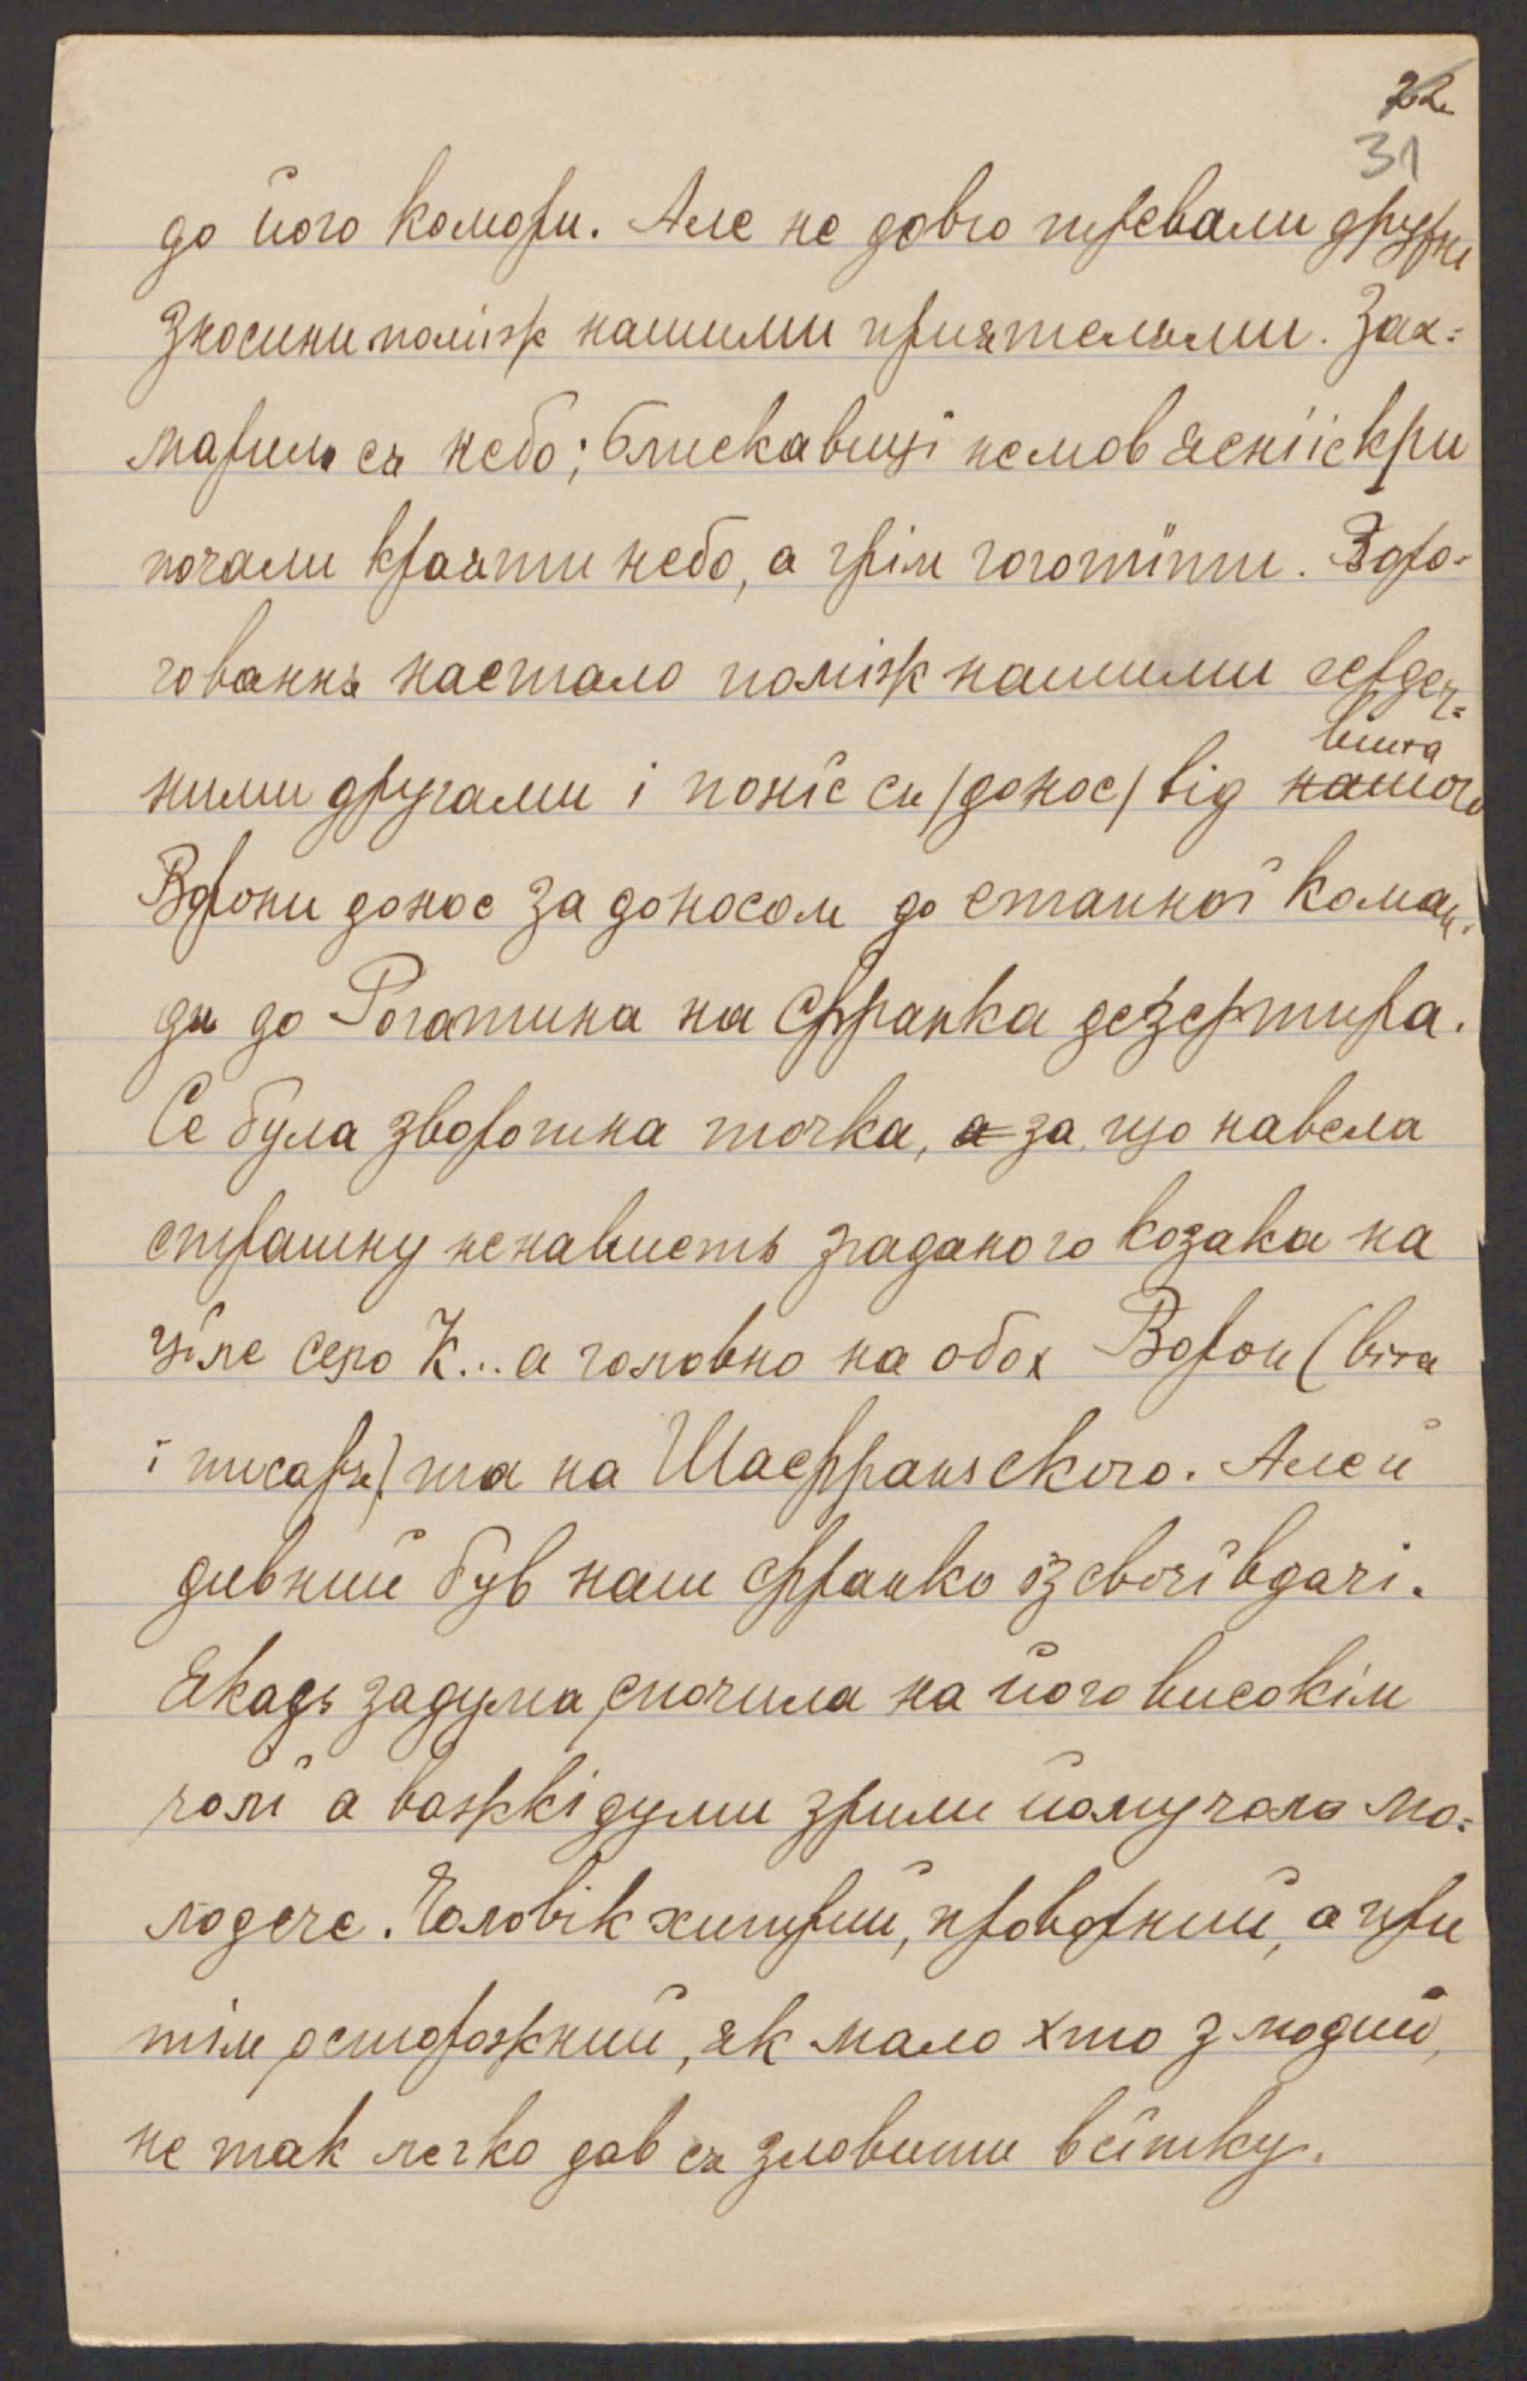 22
31
до його комори. Але не довго тревали дружні
зносини поміж нашими приятелями. Зах=
марило ся небо; блискавиці немов ясні іскри
почали краяти небо, а грім гоготїти. Воро-
гованнє настало поміж нашими сердеч=
ними другами і понїс ся /донос/ від нашого
війта
Ворони донос за доносом до етапної коман-
ди до Рогатина на Франка дезертира.
Се була зворотна точка, а за що навела
страшну ненависть згаданого козака на
цїле село К... а головно на обох Ворон (війта
і писаря) та на Шафранского. Але й
дивний був наш Франко із своєї вдачі.
Якадь задума спочила на його високім
чолї а важкі думи зрили йому чоло мо=
лодече. Чоловік хитрий, проворний, а при
тім осторожний, як мало хто з людий,
не так легко дав ся зловити в сїтку.